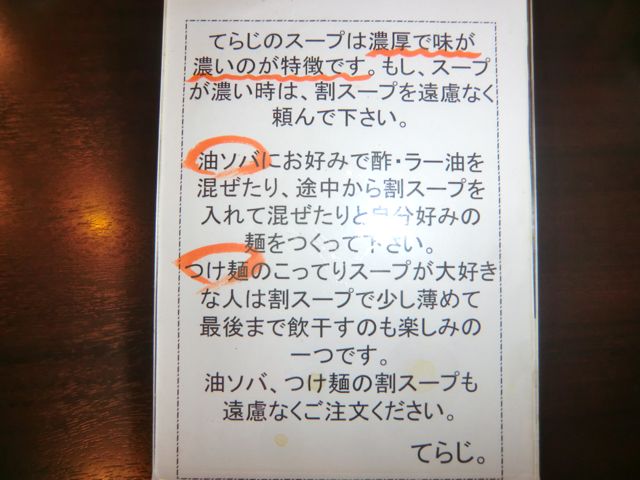 てらじのスープは濃厚で味が
濃いのが特徴です。もし、スープ
が濃い時は、割スープを遠慮なく
頼んで下さい。
油ソバにお好みで酢・ラー油を
混ぜたり、途中から割スープを
入れて混ぜたりと自分好みの
麺をつくって下さい。
つけ麺のこってりスープが大好き
な人は割スープで少し薄めて
最後まで飲干すのも楽しみの
一つです。
油ソバ、つけ麺の割スープも
遠慮なくご注文ください。
てらじ。